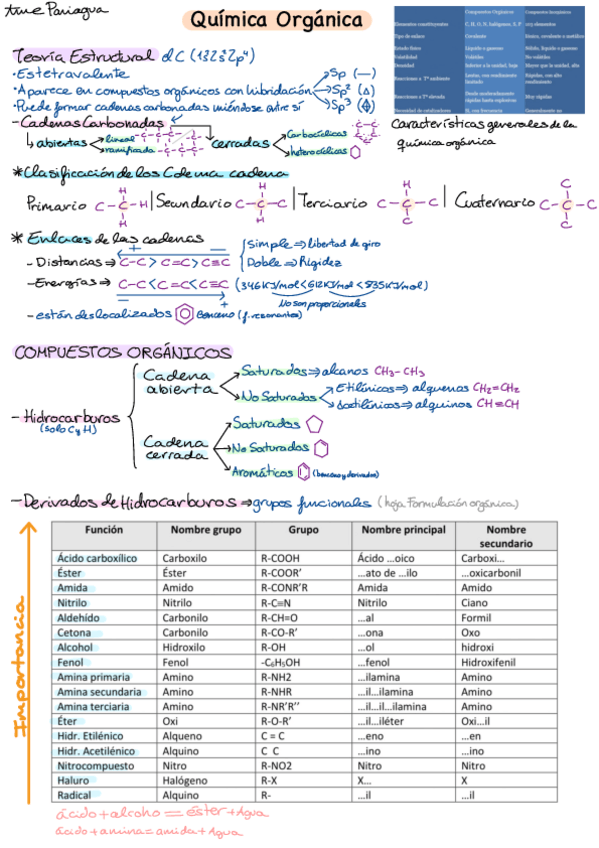 Química Orgánica
Compuestos Orgánicos Compuestos inorgánicos
Elementos constituyentes C, H, O, N, halógenos, S, P 103 elementos
Tipo de enlace Covalente Iónico, covalente o metálico
Estado físico Líquido o gaseoso Sólido, líquido o gaseoso
Volatilidad Volátiles No volátiles
Densidad Inferior a la unidad, baja Mayor que la unidad, alta
Reacciones a Tª ambiente Lentas, con rendimiento limitado Rápidas, con alto rendimiento
Reacciones a Tª elevada Desde moderadamente rápidas hasta explosivas Muy rápidas
Necesidad de catalizadores Sí, con frecuencia Generalmente no
Características generales de la
química orgánica
Teoría Estructural del C (1s²2s²2p⁴)
·Estetravalente
·Aparece en compuestos orgánicos con hibridación
Sp (—)
Sp² (△)
Sp³
·Puede formar cadenas carbonadas uniéndose entre sí
-Cadenas Carbonadas
abiertas lineal
ramificada
cerradas Carbocíclicas
heterocíclicas
*Clasificación de los C de una cadena
Primario C-C-H | Secundario C-C-C | Terciario C-C-C | Cuaternario C-C-C
* Enlaces de las cadenas
-Distancias ⇒ C-C > C=C > C≡C
Simple ⇒ libertad de giro
Doble ⇒ Rigidez
-Energías ⇒ C-C < C=C < C≡C (346KJ/mol < 612KJ/mol < 835KJ/mol)
No son proporcionales
-están deslocalizados Benceno (f. resonantes)
COMPUESTOS ORGÁNICOS
-Hidrocarburos
(solo C y H)
Cadena abierta
Saturados ⇒ alcanos CH₃-CH₃
No Saturados
Etilénicos ⇒ alquenos CH₂=CH₂
Acetilénicos ⇒ alquinos CH≡CH
Cadena cerrada
Saturados
No Saturados
Aromáticos (benceno y derivados)
-Derivados de Hidrocarburos ⇒ grupos funcionales (hoja Formulación orgánica)
Importancia
Función Nombre grupo Grupo Nombre principal Nombre secundario
Ácido carboxílico Carboxilo R-COOH Ácido …oico Carboxi…
Éster Éster R-COOR’ …ato de …ilo …oxicarbonil
Amida Amido R-CONR’R Amida Amido
Nitrilo Nitrilo R-C≡N Nitrilo Ciano
Aldehído Carbonilo R-CH=O …al Formil
Cetona Carbonilo R-CO-R’ …ona Oxo
Alcohol Hidroxilo R-OH …ol hidroxi
Fenol Fenol -C₆H₅OH …fenol Hidroxifenil
Amina primaria Amino R-NH2 …ilamina Amino
Amina secundaria Amino R-NHR …il…ilamina Amino
Amina terciaria Amino R-NR’R’’ …il…il…ilamina Amino
Éter Oxi R-O-R’ …il…iléter Oxi…il
Hidr. Etilénico Alqueno C = C …eno …en
Hidr. Acetilénico Alquino C C …ino …ino
Nitrocompuesto Nitro R-NO2 Nitro Nitro
Haluro Halógeno R-X X… X
Radical Alquino R- …il …il
ácido + alcoho = éster + Agua
ácido + amina = amida + Agua